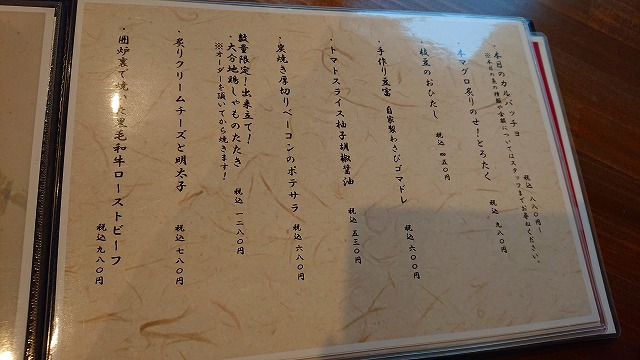 ・本日のカルパッチョ 税込 八八〇円〜
※本日の魚の種類や金額についてはスタッフまでお尋ねください。
・本マグロ炙りのせ!とろたく 税込 九八〇円
・枝豆のおひたし 税込 四五〇円
・手作り豆富 自家製わさびゴマドレ 税込 六〇〇円
・トマトスライス柚子胡椒醤油 税込 五三〇円
・炭焼き厚切りベーコンのポテサラ 税込 六八〇円
数量限定!出来立て!
・大分地鶏しゃものたたき 税込 一二八〇円
※オーダーを頂いてから焼きます!
・炙りクリームチーズと明太子 税込 七八〇円
・囲炉裏で焼いた黒毛和牛ローストビーフ 税込 九八〇円